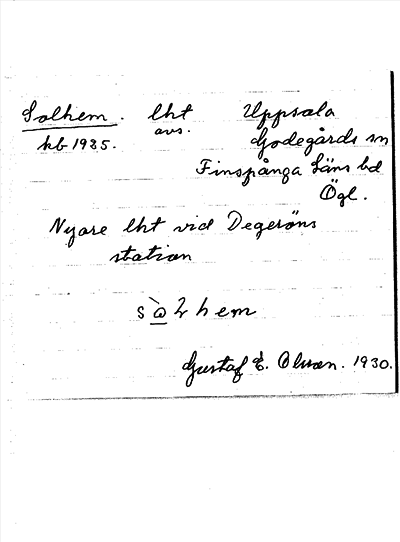 Solhem. lht Uppsala
kb 1925. avs. Godegårds sn
Finspånga Läns hd
Ögl.
Nyare lht vid Degeröns
station
sὼlhem
Gustaf E. Olsson. 1930.